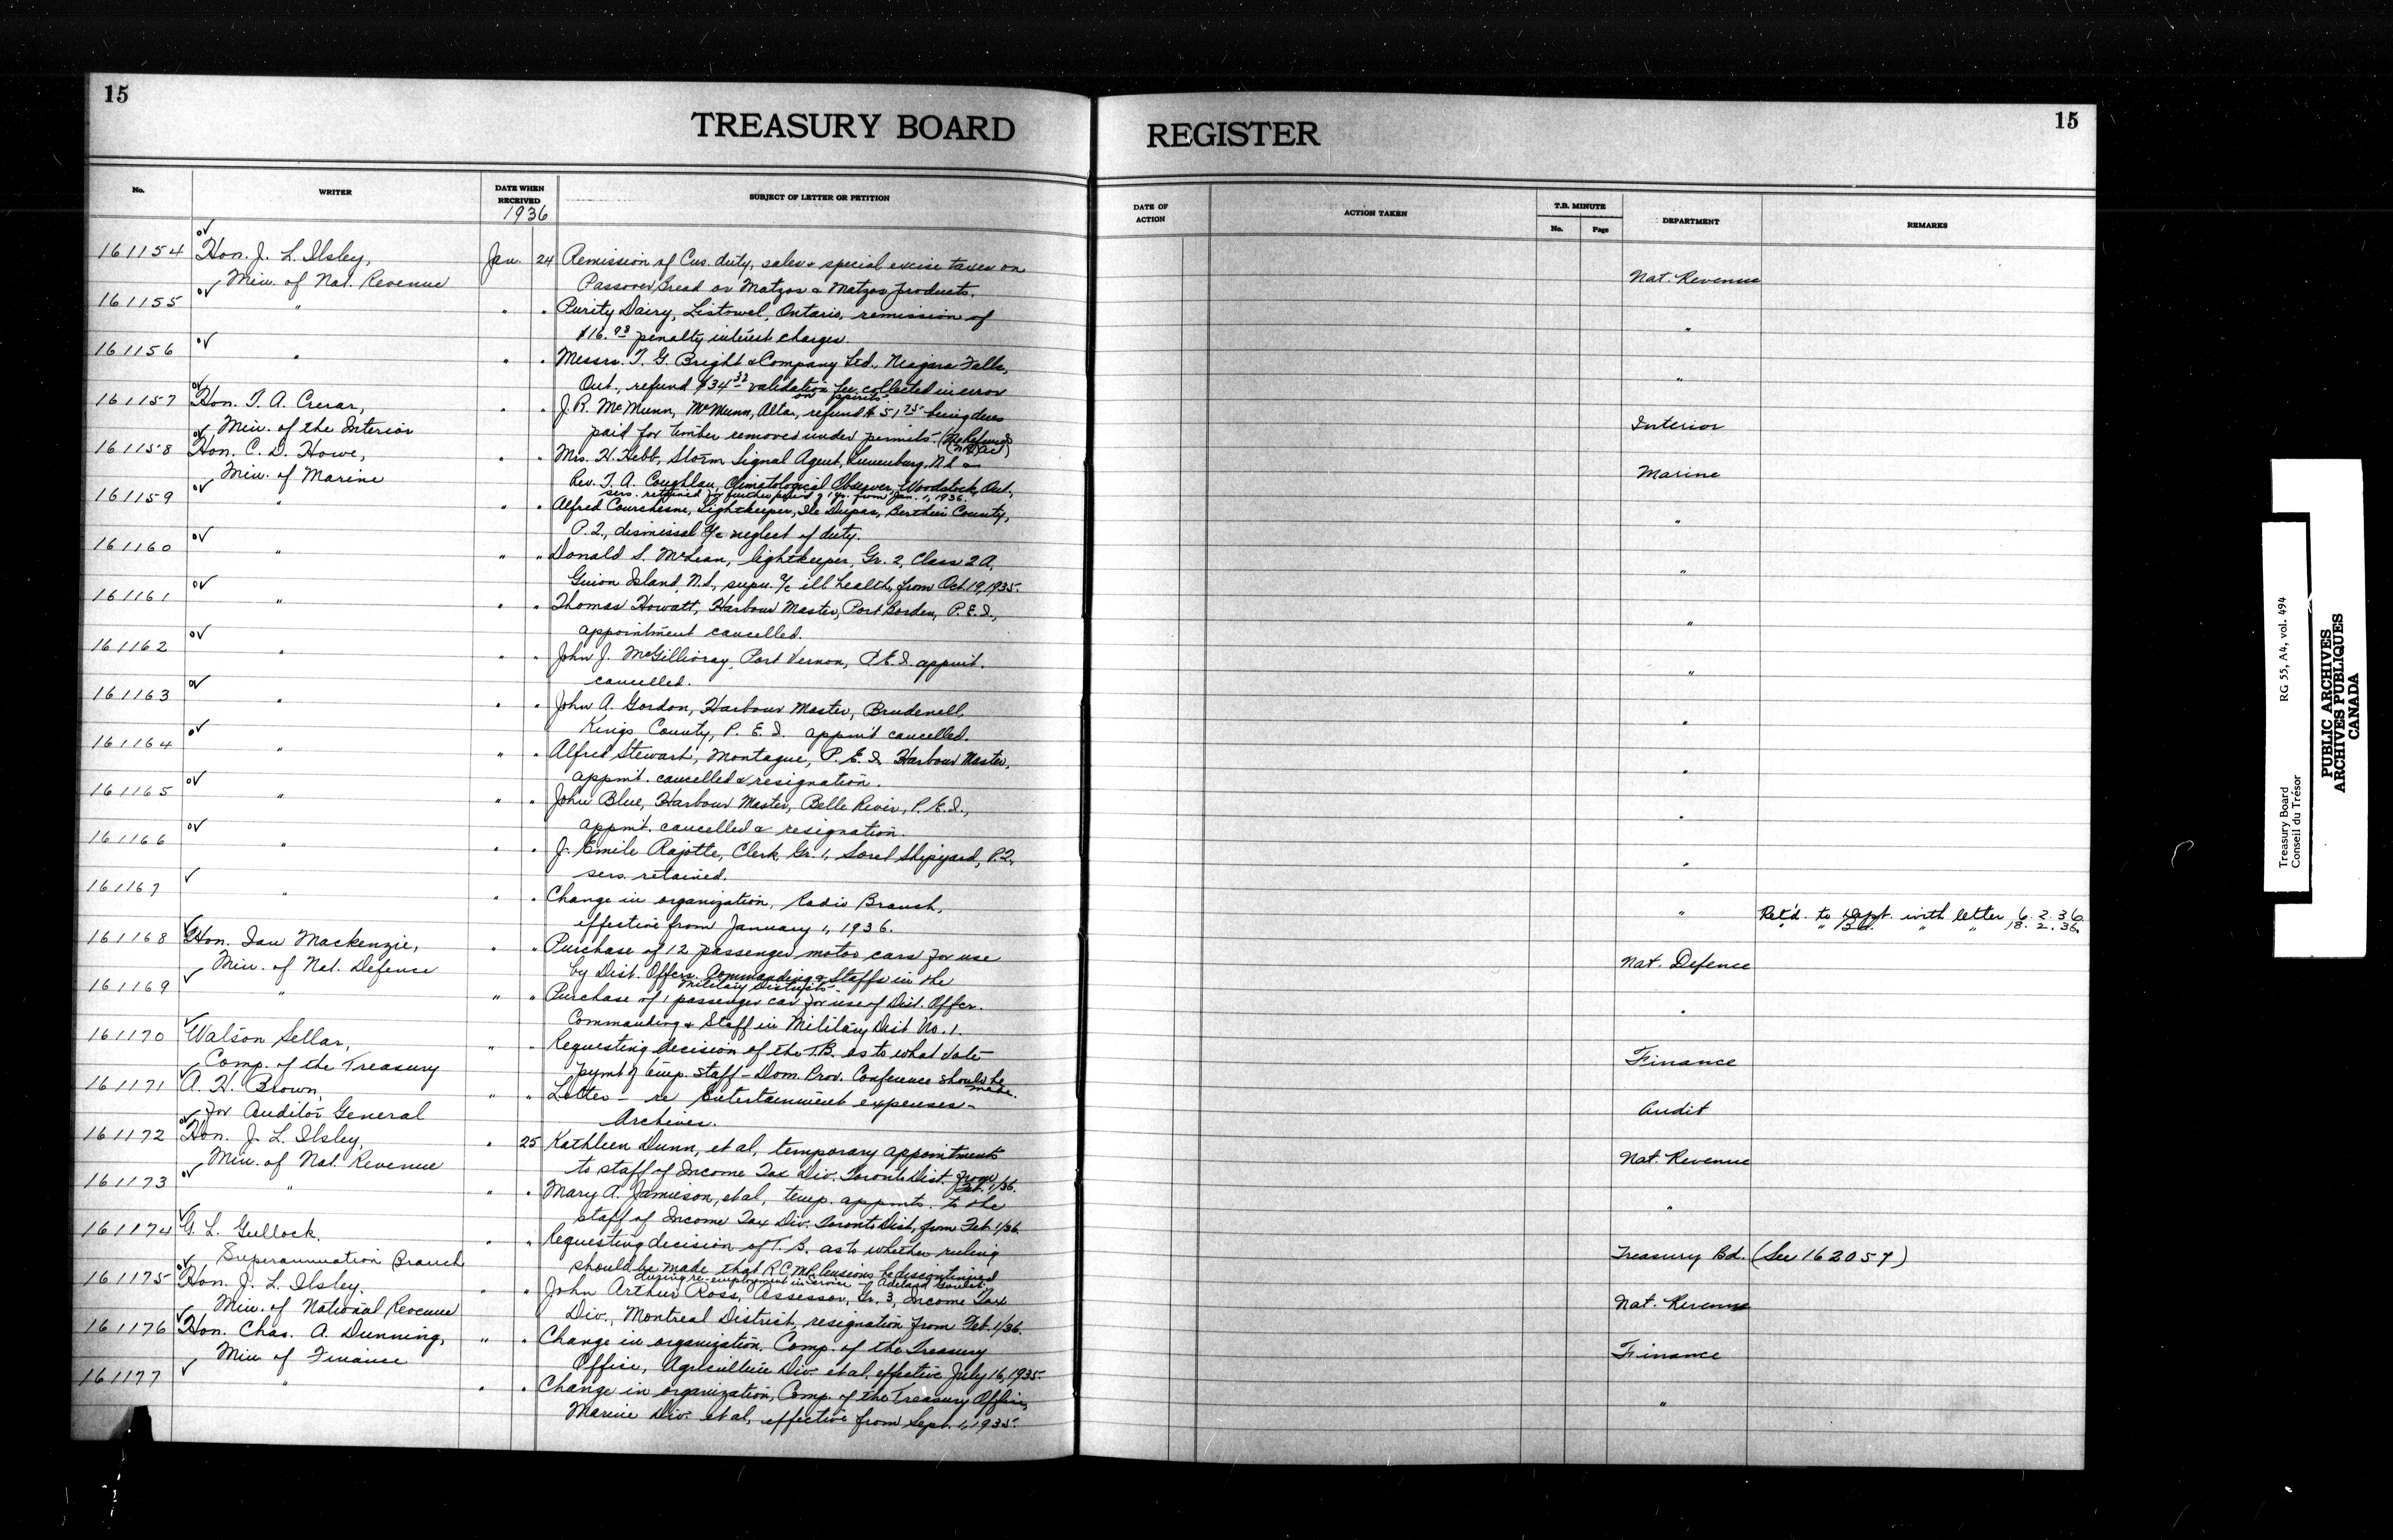 15
15
TREASURY BOARD REGISTER
No.
WRITER
DATE WHEN RECEIVED
1936
SUBJECT OF LETTER OR PETITION
DATE OF ACTION
ACTION TAKEN
T.B. MINUTE
No.
Page
DEPARTMENT
REMARKS
161154 Hon. J. L. Ilsley, Jan. 24 Remission of Cus. duty, sales & special excise taxes on
Min. of Nat. Revenue Passover Bread or Matzos & Matzos products. Nat. Revenue
161155 " " " Purity Dairy, Listowel, Ontario, remission of
$16.98 penalty interest charges. "
161156 " " " Messrs. T. G. Bright & Company Ltd., Niagara Falls,
Ont., refund $34.32 validation fee collected in error "
on spirits
161157 Hon. T. A. Crerar, " " J. R. McMunn, McMunn, Alta., refund $51.75 being dues
Min. of the Interior paid for timber removed under permits. Interior
161158 Hon. C. D. Howe, " " Mrs. H. Hebb, Storm Signal Agent, Lunenburg, N.S. &
Min. of Marine Rev. T. A. Coughlan, Climatological Observer, Woodstock, Ont., Marine
sers. retained for further period of 1 yr. from Jan. 1, 1936.
161159 " " " Alfred Courchesne, Lightkeeper, Ile Dupas, Berthier County,
P.Q., dismissal a/c neglect of duty. "
161160 " " " Donald S. McLean, lightkeeper, Gr. 2, Class 2A,
Guion Island, N.S., supn. a/c ill health, from Oct. 19, 1935. "
161161 " " " Thomas Howatt, Harbour Master, Port Borden, P.E.I.,
appointment cancelled. "
161162 " " " John J. McGillivray, Port Vernon, P.E.I. appmt.
cancelled. "
161163 " " " John A. Gordon, Harbour Master, Brudenell,
Kings County, P.E.I. appmt cancelled. "
161164 " " " Alfred Stewart, Montague, P.E.I. Harbour Master,
appmt. cancelled & resignation. "
161165 " " " John Blue, Harbour Master, Belle River, P.E.I.,
appmt. cancelled & resignation. "
161166 " " " J. Emile Rajotte, Clerk, Gr. 1, Sorel Shipyard, P.Q.,
sers. retained. "
161167 " " " Change in organization, Radio Branch,
effective from January 1, 1936. " Ret'd. to Dept. with letter 6.2.36.
" " Bd. " " 18.2.36.
161168 Hon. Ian Mackenzie, " " Purchase of 12 passenger motor cars for use
Min. of Nat. Defense by Dist. Offcrs. Commanding & Staffs in the Nat. Defence
Military Districts.
161169 " " " Purchase of 1 passenger car for use of Dist. Offcr.
Commanding & Staff in Military Dist No. 1. "
161170 Watson Sellar, " " Requesting decision of the T.B. as to what date
Comp. of the Treasury pymt of temp. staff - Dom. Prov. Conference should be Finance
made.
161171 A. H. Brown, " " Letter - re Entertainment expenses -
for Auditor General Archives. Audit
161172 Hon. J. L. Ilsley, " 25 Kathleen Dunn, et al, temporary appointments
Min. of Nat. Revenue to staff of Income Tax Div. Toronto Dist. from Nat. Revenue
Feb. 1/36.
161173 " " " Mary A. Jamieson, et al, temp. appmts. to the
staff of Income Tax Div. Toronto Dist, from Feb. 1/36. "
161174 G. L. Gullock, " " Requesting decision of T.B. as to whether ruling
Superannuation Branch should be made that R.C.M.P. Pensions be discontinued Treasury Bd. (See 162057)
during re-employment in Service
161175 Hon. J. L. Ilsley, " " John Arthur Ross, Assessor, Gr. 3, Income Tax
Min. of National Revenue Div., Montreal District, resignation from Feb. 1/36. Nat. Revenue
161176 Hon. Chas. A. Dunning, " " Change in organization, Comp. of the Treasury
Min of Finance Office, Agriculture Div. et al, effective July 16, 1935. Finance
161177 " " " Change in organization, Comp. of the Treasury Office,
Marine Div. et al, effective from Sept. 1, 1935. "
Treasury Board RG 55, A4, vol. 494
Conseil du Trésor
PUBLIC ARCHIVES
ARCHIVES PUBLIQUES
CANADA